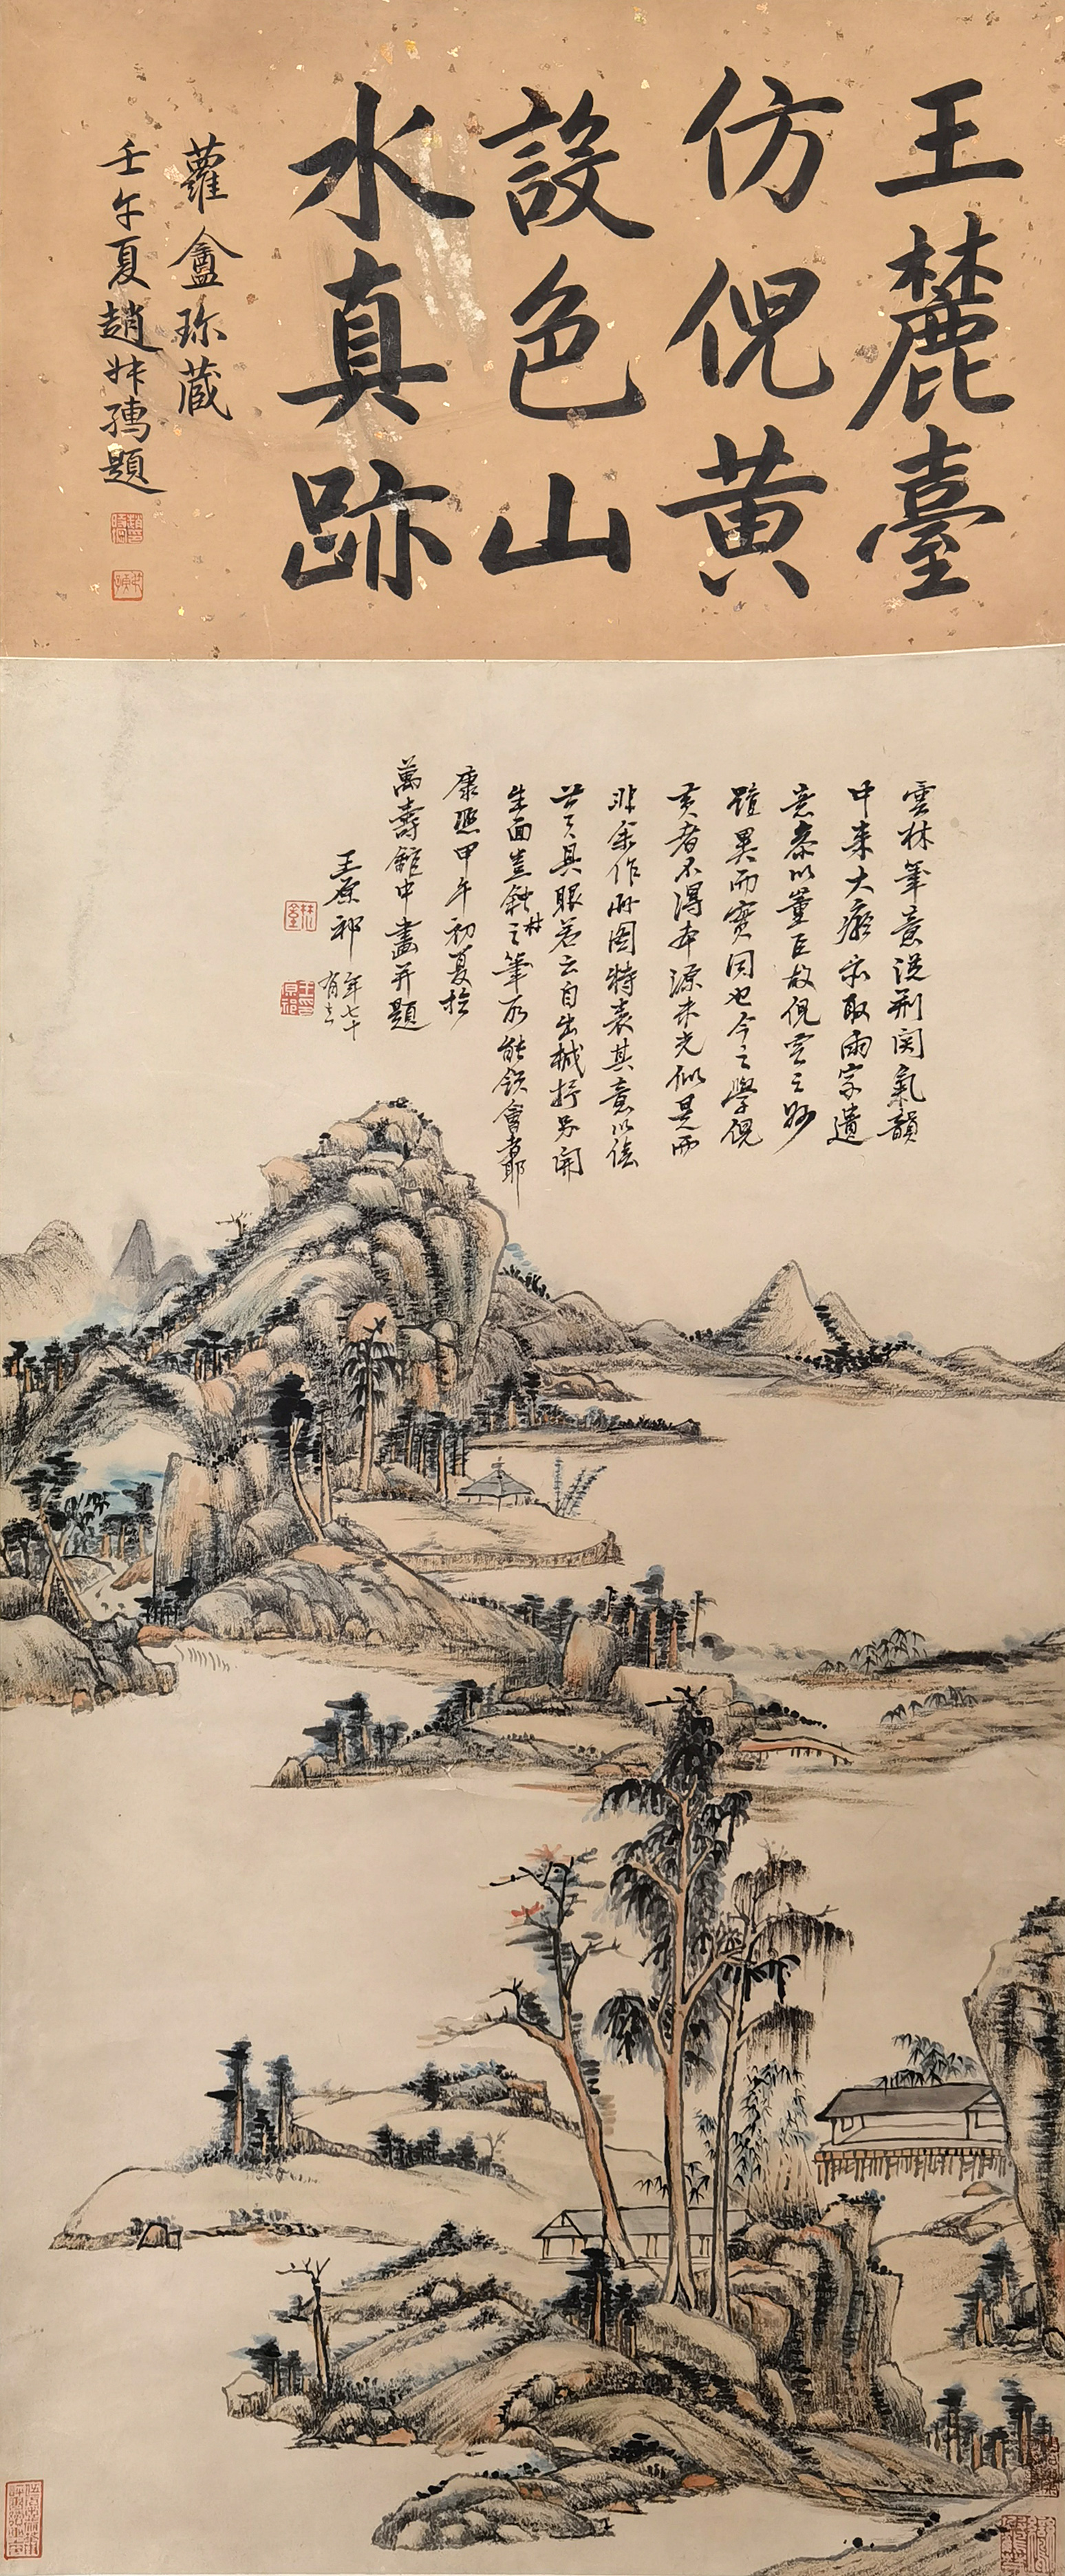 王麓臺
仿倪黄
設色山
水真跡
蘿盦珎蔵
壬午夏趙叔孺題
雲林筆意從荆関氣韻
中来大癡亦取兩家遺
意叅以董巨故倪黄之妙
蹤異而實同也今之學倪
黄者不得本源未免似是而
非余作此圖特表其意以俟
世具眼若云自出機抒另開
生面豈鈍村之筆所能領會耶
康熙甲午初夏於
萬壽館中畫并題
王原祁年七十
有三